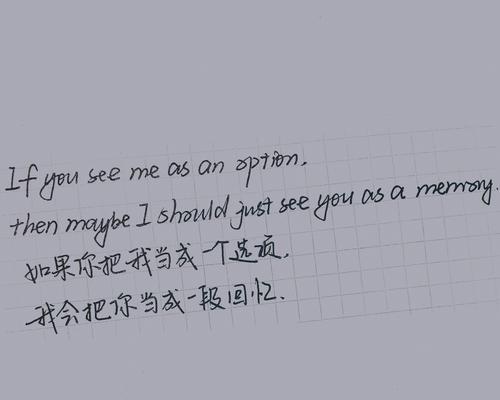 If you see me as an option.
then maybe I should just see you as a memory.
如果你把我当成一个选项,
我会把你当成一段回忆.